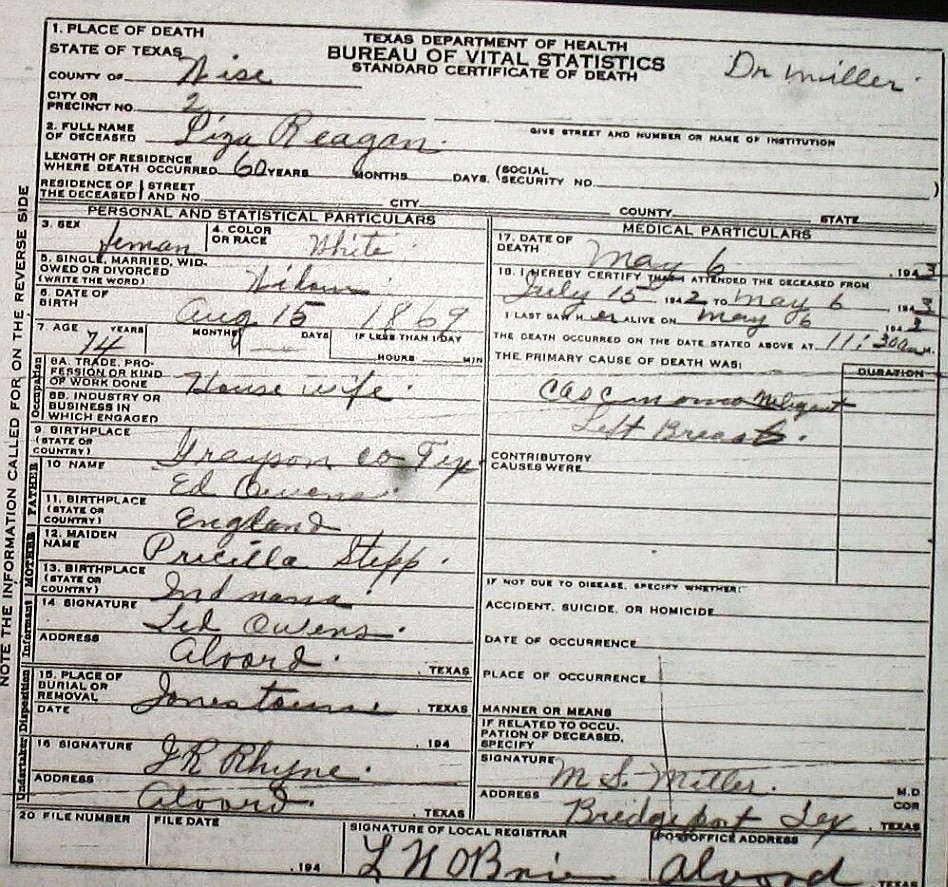 1. PLACE OF DEATH
STATE OF TEXAS
COUNTY OF Wise
CITY OR
PRECINCT NO. 2
TEXAS DEPARTMENT OF HEALTH
BUREAU OF VITAL STATISTICS
STANDARD CERTIFICATE OF DEATH
Dr Miller
GIVE STREET AND NUMBER OR NAME OF INSTITUTION
2. FULL NAME
OF DECEASED Liza Reagan.
LENGTH OF RESIDENCE
WHERE DEATH OCCURRED 60 YEARS MONTHS DAYS. (SOCIAL
SECURITY NO. )
RESIDENCE OF STREET
THE DECEASED AND NO. CITY COUNTY STATE
PERSONAL AND STATISTICAL PARTICULARS
3. SEX 4. COLOR
OR RACE White
5. SINGLE, MARRIED, WID-
OWED OR DIVORCED
(WRITE THE WORD)
6. DATE OF
BIRTH Aug 15 1869
7. AGE YEARS MONTHS DAYS IF LESS THAN 1 DAY
74 HOURS MIN
Occupation
8A. TRADE, PRO-
FESSION OR KIND
OF WORK DONE House wife.
8B. INDUSTRY OR
BUSINESS IN
WHICH ENGAGED
9. BIRTHPLACE
(STATE OR
COUNTRY) Grayson co Tex.
FATHER
10 NAME Ed Owens.
11. BIRTHPLACE
(STATE OR
COUNTRY) England
MOTHER
12. MAIDEN
NAME Pricilla Stepp.
13. BIRTHPLACE
(STATE OR
COUNTRY)
Informant
14 SIGNATURE Ted Owens.
ADDRESS Alvord. , TEXAS
Undertaker Disposition
15. PLACE OF
BURIAL OR
REMOVAL , TEXAS
DATE , 194
16 SIGNATURE J R Rhyne.
ADDRESS Alvord. , TEXAS
MEDICAL PARTICULARS
17. DATE OF
DEATH May 6 , 194 3
18. I HEREBY CERTIFY THAT I ATTENDED THE DECEASED FROM
July 15 194 2 TO May 6 , 194 3
I LAST SAW H er ALIVE ON May 6 194
THE DEATH OCCURRED ON THE DATE STATED ABOVE AT 11:30 a M.
THE PRIMARY CAUSE OF DEATH WAS: DURATION
Left Breast.
CONTRIBUTORY
CAUSES WERE
IF NOT DUE TO DISEASE, SPECIFY WHETHER:
ACCIDENT, SUICIDE, OR HOMICIDE
DATE OF OCCURRENCE
PLACE OF OCCURRENCE
MANNER OR MEANS
IF RELATED TO OCCU-
PATION OF DECEASED,
SPECIFY
SIGNATURE M S. Miller. M.D.
COR
ADDRESS Bridgeport Tex , TEXAS
20 FILE NUMBER FILE DATE , 194
SIGNATURE OF LOCAL REGISTRAR
POSTOFFICE ADDRESS
Alvord TEXAS
NOTE THE INFORMATION CALLED FOR ON THE REVERSE SIDE